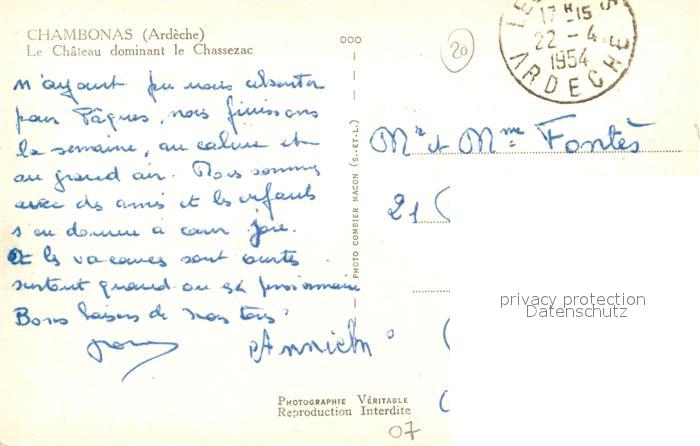 CHAMBONAS (Ardèche)
Le Château dominant le Chassezac
n'ayant pu nous absenter
pour Pâques, nous finissons
la semaine, au calme et
au grand air. Nous sommes
avec des amis et les enfants
s'en donnent à cœur joie.
Et les vacances sont courtes
surtout quand on est pensionnaire
Bons baisers de nous tous
PHOTO COMBIER MACON (S.-ET-L.)
20
LES
17 H 15
22 - 4
1954
ARDECHE
Mr et Mme Fontès
21
privacy protection
Datenschutz
PHOTOGRAPHIE VÉRITABLE
Reproduction Interdite
07